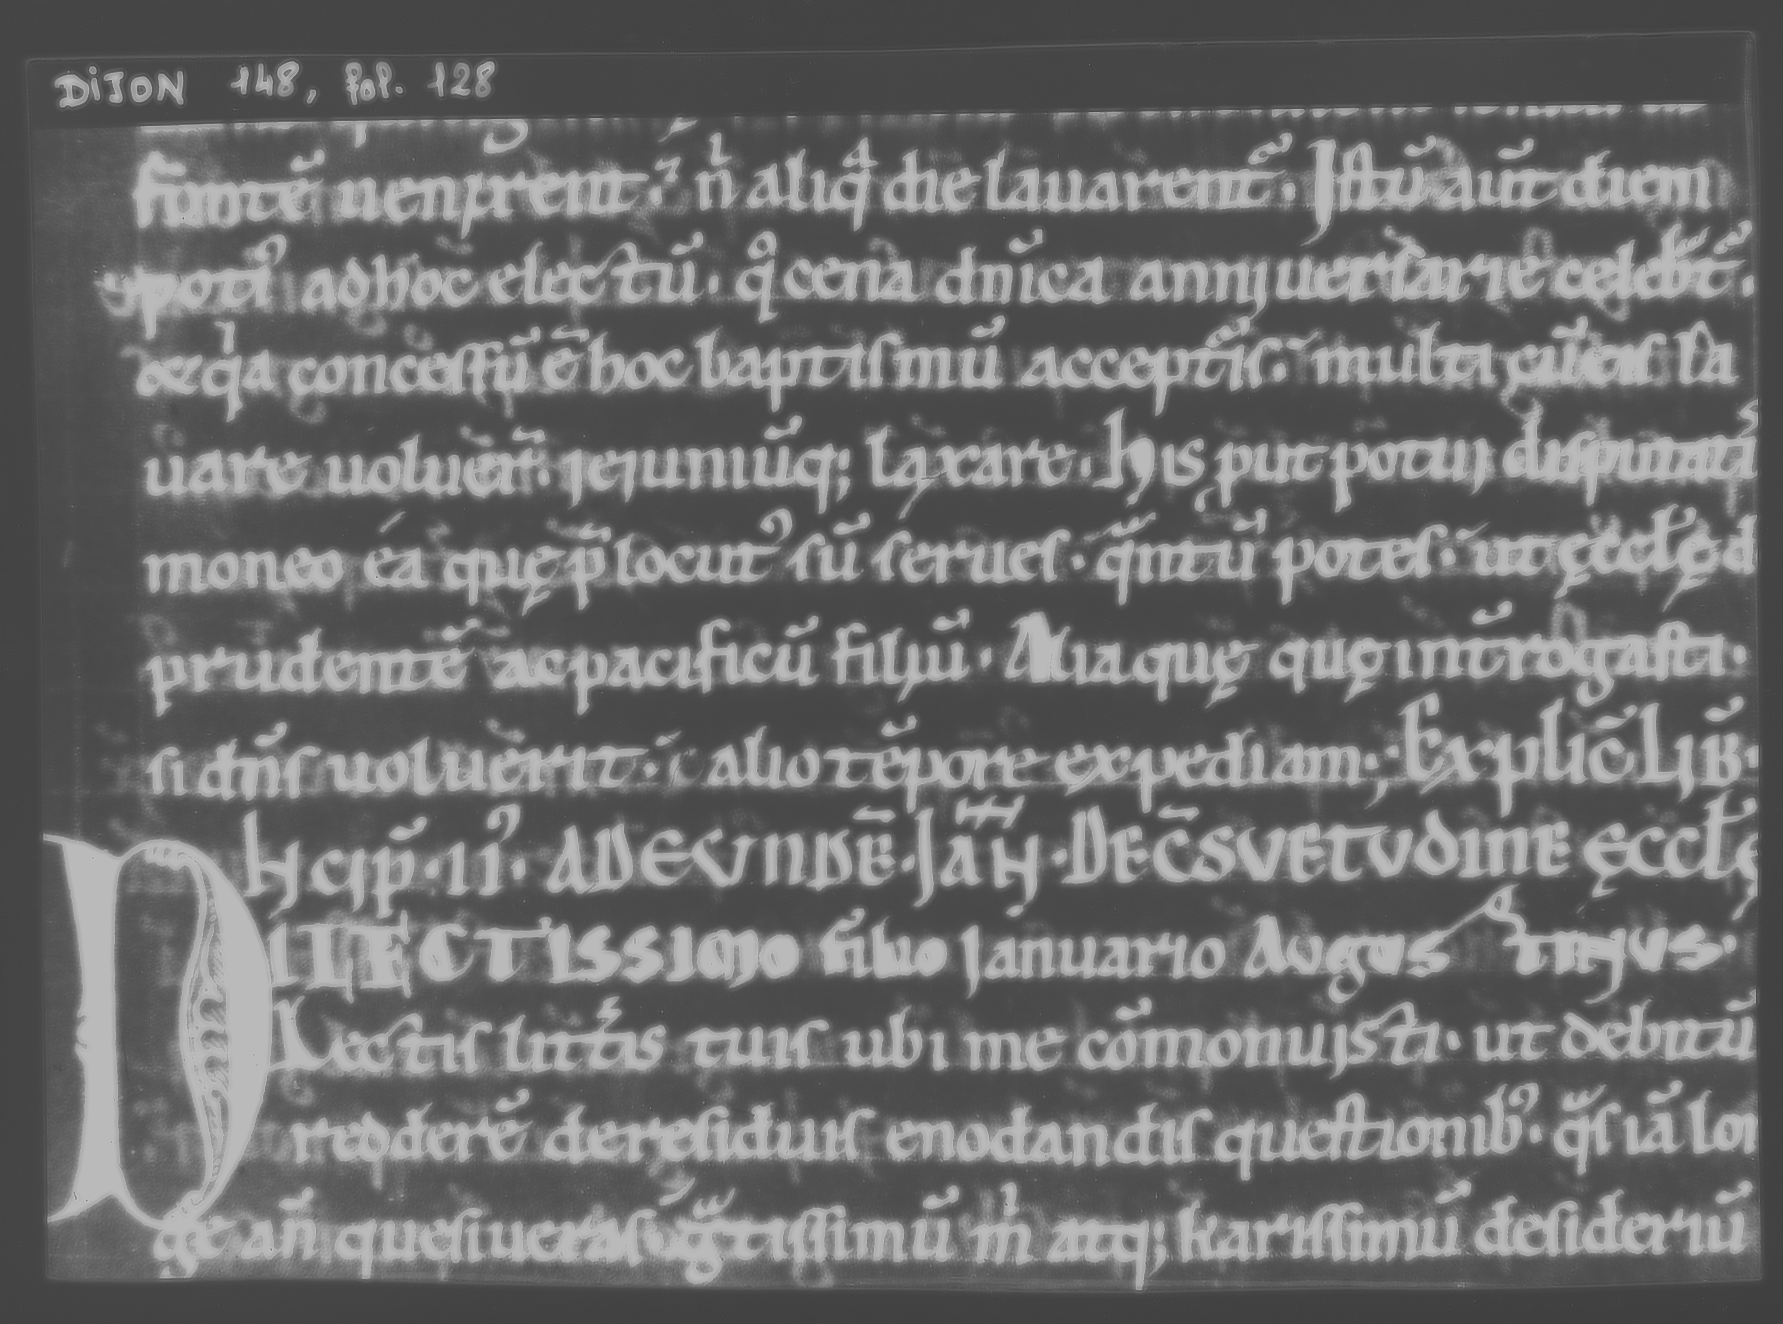 DIJON 148, fol. 128
sūmtē uenirent. n̄ aliq̄ die lauarent̄. Istū aūt diem
poti᷒ adhoc electū. q̊ cena dn̄ica anniuersarie celebr̄t̄.
& q̇a concessū ē hoc baptismū accepturis. multi cū eis la
uare uoluer̄. ieiuniūq; laxare. His put potui disputatis
moneo ea quę p̄locut᷒ sū serues. q̄ntū potes. ut ęcclę d
prudentē ac pacificū filiū. Aliaquę quę int̄rogasti.
si dn̄s uoluerit. alio tēpore expediam. Explic̄ Lib̄.
Hcip̄. II᷒. ADEVNDĒ. Jan̄. DEC̄SVETVDINE ĘCCŁĘ
DILECTISSIMO filio Ianuario Augustinus.
Lectis litt̄is tuis ubi me cōmonuisti. ut debitū
redderē deresiduis enodandis questionib᷒. q̄s iā lon
ge an̄ quesiueras. gr̄tissimū m̄ atq; karissimū desideriū